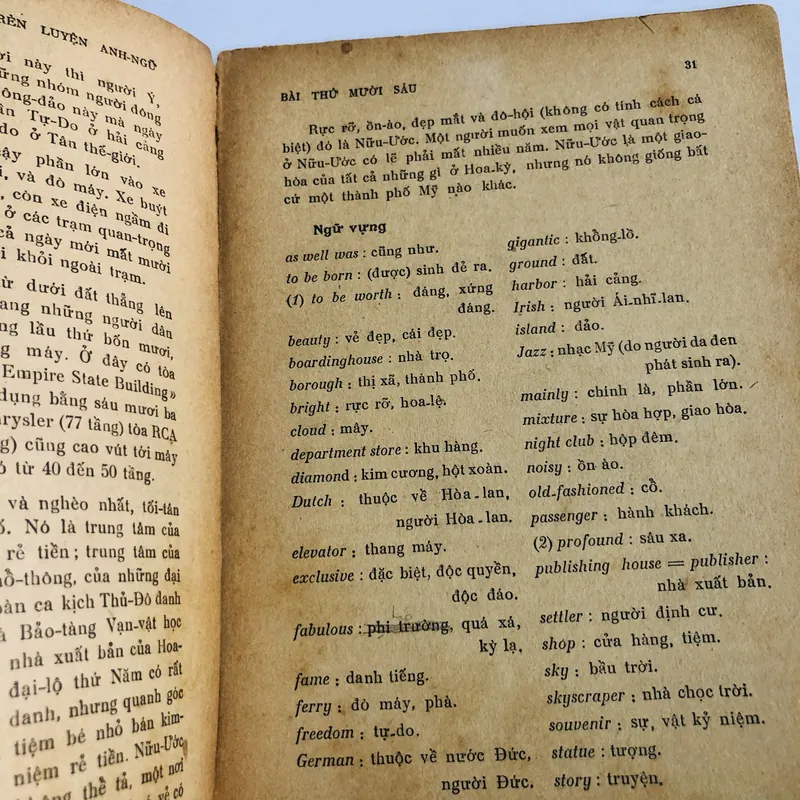 RÈN LUYỆN ANH-NGỮ
này thì người Ý,
những nhóm người đông
đông-đảo này mà ngày
Tự-Do ở hải cảng
do ở Tân thế-giới.
vậy phần lớn vào xe
và đò máy. Xe buýt
còn xe điện ngầm đi
ở các trạm quan-trọng
cả ngày mới mất mười
khỏi ngoài trạm.
từ dưới đất thẳng lên
mang những người dân
lầu thứ bốn mươi,
máy. Ở đây có tòa
Empire State Building»
dựng bằng sáu mươi ba
Chrysler (77 tầng) tòa RCA
cũng cao vút tới mây
có từ 40 đến 50 tầng.
và nghèo nhất, tối-tân
Nó là trung tâm của
rẻ tiền; trung tâm của
phồ-thông, của những đại
ca kịch Thủ-Đô danh
và Bảo-tàng Vạn-vật học
nhà xuất bản của Hoa-
đại-lộ thứ Năm có rất
danh, nhưng quanh góc
tiệm bé nhỏ bán kim-
niệm rẻ tiền. Nữu-Ước
không thể tả, một nơi
vẻ có
BÀI THỨ MƯỜI SÁU 31
Rực rỡ, ồn-ào, đẹp mắt và đô-hội (không có tính cách cá
biệt) đó là Nữu-Ước. Một người muốn xem mọi vật quan trọng
ở Nữu-Ước có lẽ phải mất nhiều năm. Nữu-Ước là một giao-
hòa của tất cả những gì ở Hoa-kỳ, nhưng nó không giống bất
cứ một thành phố Mỹ nào khác.
Ngữ vựng
as well was : cũng như.
to be born : (được) sinh đẻ ra.
(1) to be worth : đáng, xứng
đáng.
beauty : vẻ đẹp, cái đẹp.
boardinghouse : nhà trọ.
borough : thị xã, thành phố.
bright : rực rỡ, hoa-lệ.
cloud : mây.
department store : khu hàng.
diamond : kim cương, hột xoàn.
Dutch : thuộc về Hòa-lan,
người Hòa-lan.
elevator : thang máy.
exclusive : đặc biệt, độc quyền,
độc đáo.
fabulous : phi trường, quá xá,
kỳ lạ.
fame : danh tiếng.
ferry : đò máy, phà.
freedom : tự-do.
German : thuộc về nước Đức,
người Đức.
gigantic : khồng-lồ.
ground : đất.
harbor : hải cảng.
Irish : người Ái-nhĩ-lan.
island : đảo.
Jazz : nhạc Mỹ (do người da đen
phát sinh ra).
mainly : chính là, phần lớn.
mixture : sự hòa hợp, giao hòa.
night club : hộp đêm.
noisy : ồn ào.
old-fashioned : cổ.
passenger : hành khách.
(2) profound : sâu xa.
publishing house = publisher :
nhà xuất bản.
settler : người định cư.
shop : cửa hàng, tiệm.
sky : bầu trời.
skyscraper : nhà chọc trời.
souvenir : sự, vật kỷ niệm.
statue : tượng.
story : truyện.